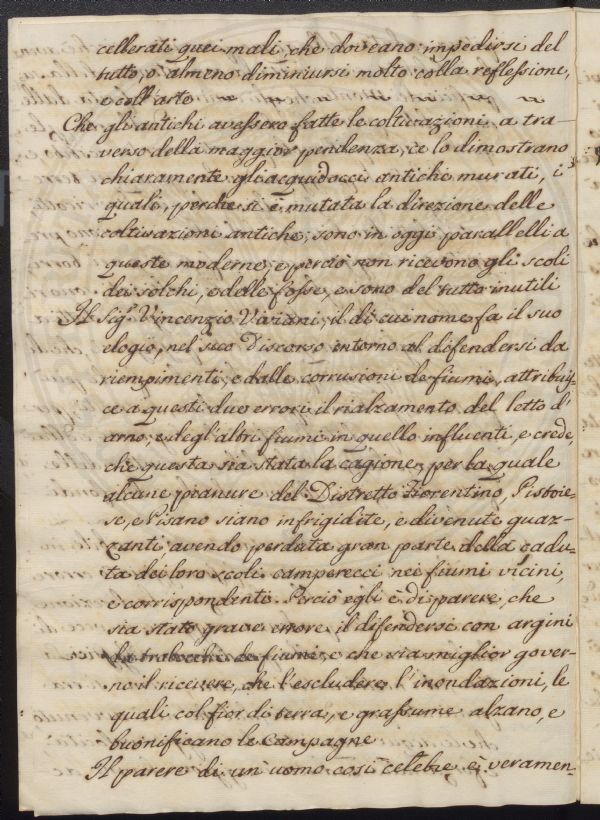 cellerati quei mali, che doveano impedirsi del
tutto, o almeno diminuirsi molto colla reflessione,
e coll'arte
Che gli antichi avessero fatte le coltivazioni a tra-
verso della maggior pendenza, ce lo dimostrano
chiaramente gli acquidocci antichi murati, i
quali, perche si è mutata la direzione delle
coltivazioni antiche, sono in oggi parallelli a
queste moderne, e perciò non ricevono gli scoli
dei solchi, e delle fosse, e sono del tutto inutili
Il Sigr. Vincenzio Viviani, il di cui nome fa il suo
elogio, nel suo Discorso intorno al difendersi da
riempimenti, e dalle corrusioni de fiumi, attribuis-
ce a questi duo errori il rialzamento del letto d'
arno, e degl'altri fiumi in quello influenti, e crede,
che questa sia stata la cagione, per la quale
alcune pianure del Distretto Fiorentino, Pistoie-
se, e Pisano siano infrigidite, e divenute guaz-
zanti, avendo perduta gran parte della cadu-
ta dei loro scoli camperecci nei fiumi vicini,
e corrispondenti. Perciò egli è di parere, che
sia stato grave errore il difendersi con argini
da trabocchi de fiumi, e che sia miglior gover-
no il ricevere, che l'escludere l'inondazioni, le
quali col fior di terra, e grassume alzano, e
buonificano le Campagne
Il parere di un uomo così celebre è veramen-